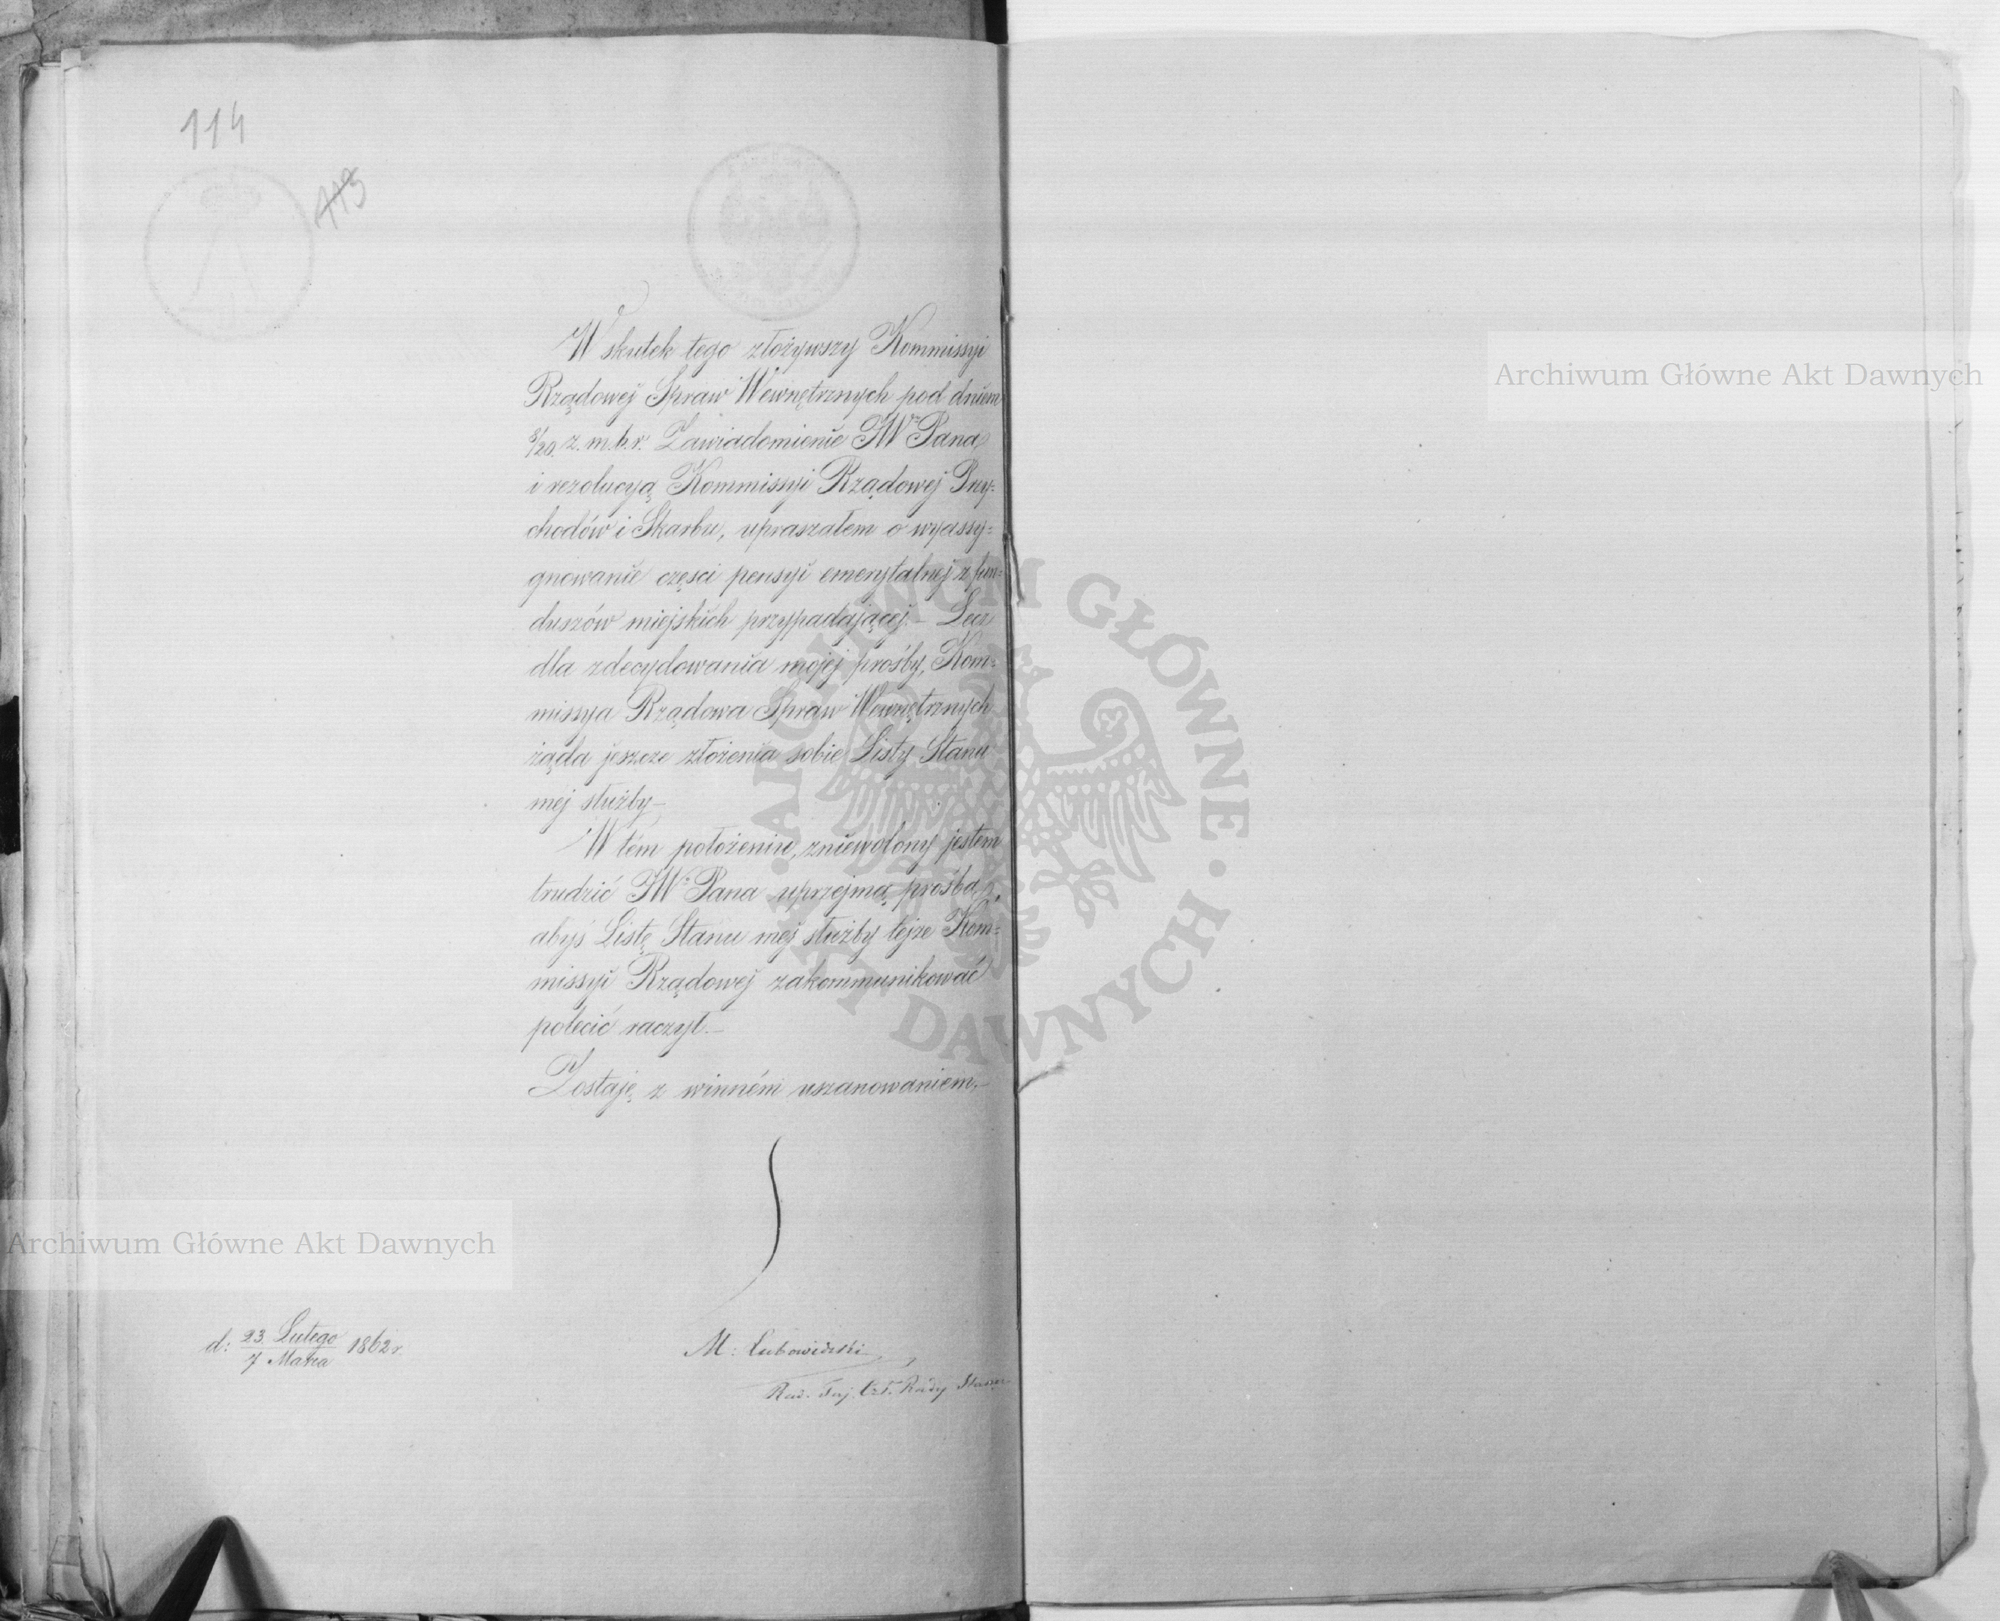 114
113
W skutek tego złożywszy Kommissyi
Rządowej Spraw Wewnętrznych pod dniem
8/20. z. m. b. r. Zawiadomienie JWo Pana
i rezolucyą Kommissyi Rządowej Przy=
chodów i Skarbu, upraszałem o wyassy=
gnowanie części pensyi emerytalnej z fun=
duszów miejskich przypadającej. – Lecz
dla zdecydowania mojej prośby, Kom=
missya Rządowa Spraw Wewnętrznych
żąda jeszcze złożenia sobie Listy Stanu
mej służby –
W tém położeniu, zniewolony jestem
trudzić JWo Pana uprzejmą prośbą,
abyś Listę Stanu mej służby tejże Kom=
missyi Rządowej zakommunikować
polecić raczył. –
Zostaję z winném uszanowaniem. –
d: 23. Lutego / 7 Marca 1862 r.
M: Lubowidzki
Rad. Taj. Czł. Rady Stanu
Archiwum Główne Akt Dawnych
Archiwum Główne Akt Dawnych
ARCHIWUM GŁÓWNE · AKT DAWNYCH ·